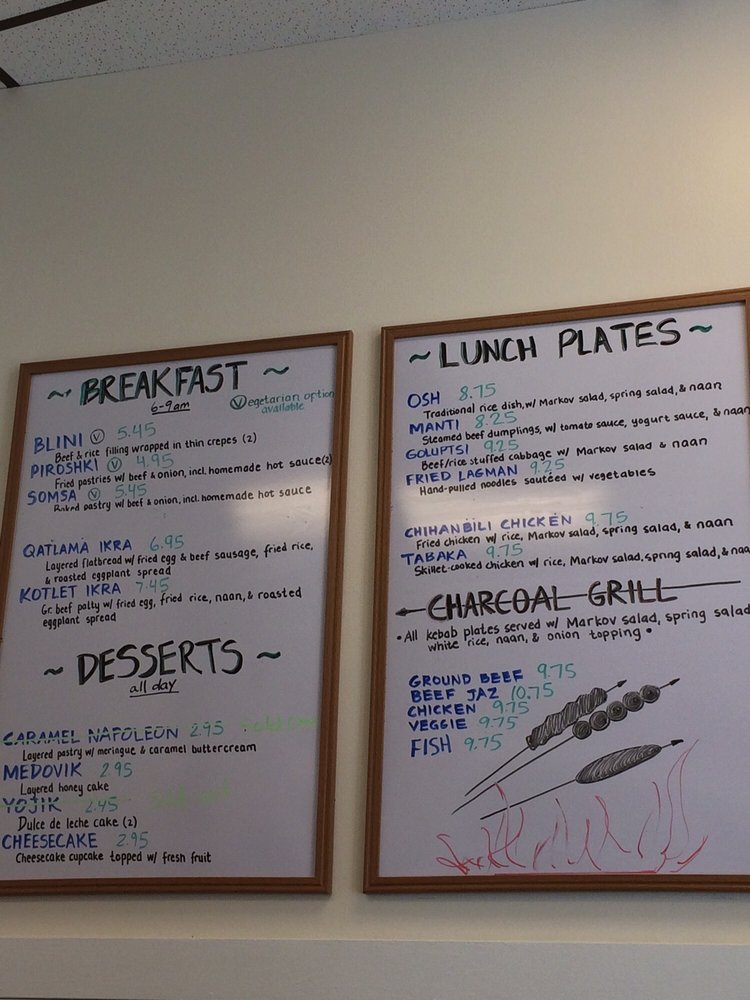 ~ BREAKFAST ~
6-9am
Ⓥegetarian option
available
BLINI Ⓥ 5.45
Beef & rice filling wrapped in thin crepes (2)
PIROSHKI Ⓥ 4.95
Fried pastries w/ beef & onion, incl. homemade hot sauce(2)
SOMSA Ⓥ 5.45
Baked pastry w/ beef & onion, incl. homemade hot sauce
QATLAMA IKRA 6.95
Layered flatbread w/ fried egg & beef sausage, fried rice,
& roasted eggplant spread
KOTLET IKRA 7.45
Gr. beef patty w/ fried egg, fried rice, naan, & roasted
eggplant spread
~ DESSERTS ~
all day
CARAMEL NAPOLEON 2.95 Sold out
Layered pastry w/ meringue & caramel buttercream
MEDOVIK 2.95
Layered honey cake
YOJIK 2.45 Sold out
Dulce de leche cake (2)
CHEESECAKE 2.95
Cheesecake cupcake topped w/ fresh fruit
~ LUNCH PLATES ~
OSH 8.75
Traditional rice dish, w/ Markov salad, spring salad, & naan
MANTI 8.25
Steamed beef dumplings, w/ tomato sauce, yogurt sauce, & naan
GOLUPTSI 9.25
Beef/rice stuffed cabbage w/ Markov salad & naan
FRIED LAGMAN 9.25
Hand-pulled noodles sautéed w/ vegetables
CHIHANBILI CHICKEN 9.75
Fried chicken w/ rice, Markov salad, spring salad, & naan
TABAKA 9.75
Skillet-cooked chicken w/ rice, Markov salad, spring salad, & naan
CHARCOAL GRILL
• All kebab plates served w/ Markov salad, spring salad
white rice, naan, & onion topping •
GROUND BEEF 9.75
BEEF JAZ 10.75
CHICKEN 9.75
VEGGIE 9.75
FISH 9.75